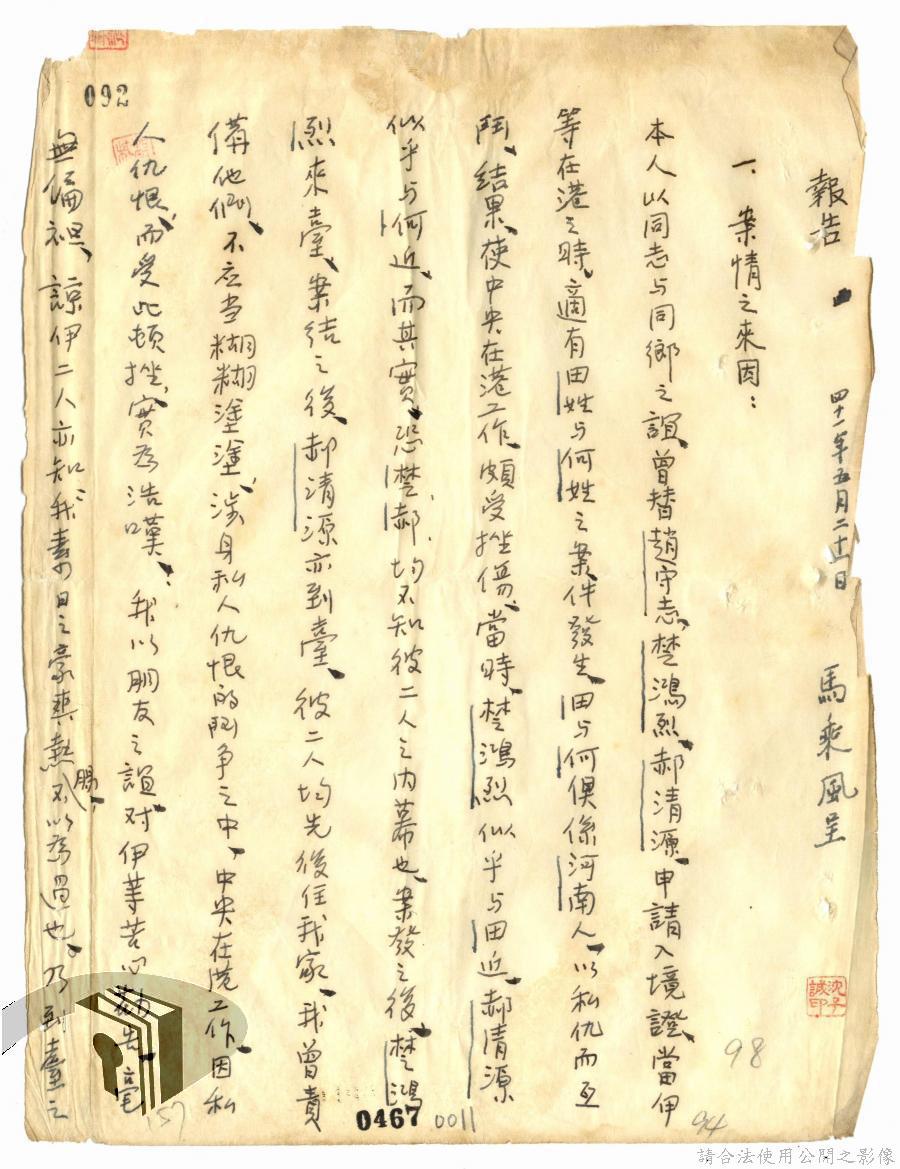 092
報告 四十一年五月二十一日 馬乘風呈
一、案情之來因：
本人以同志与同鄉之誼，曾替趙守志，楚鴻烈，郝清源，申請入境證，當伊
等在港之時，適有田姓与何姓之案件發生，田与何俱係河南人，以私仇而互
鬥，結果，使中央在港工作，頗受挫傷，當時，楚鴻烈似乎与田近，郝清源
似乎与何近，而其實，恐楚郝，均不知彼二人之内幕也，案發之後，楚鴻
烈來臺，案結之後，郝清源亦到臺，彼二人均先後住我家，我曾責
備他們，不应当糊糊塗塗，涉身私人仇恨的鬥争之中，中央在港工作，因私
人仇恨，而受此頓挫，實為浩嘆，：我以朋友之誼，对伊等苦心勸告，毫
無偏袒，諒伊二人亦知我素日之豪爽熱腸，不以為過也，乃到臺之
沈子誠印
98
94
157
0467
0011
請合法使用公開之影像